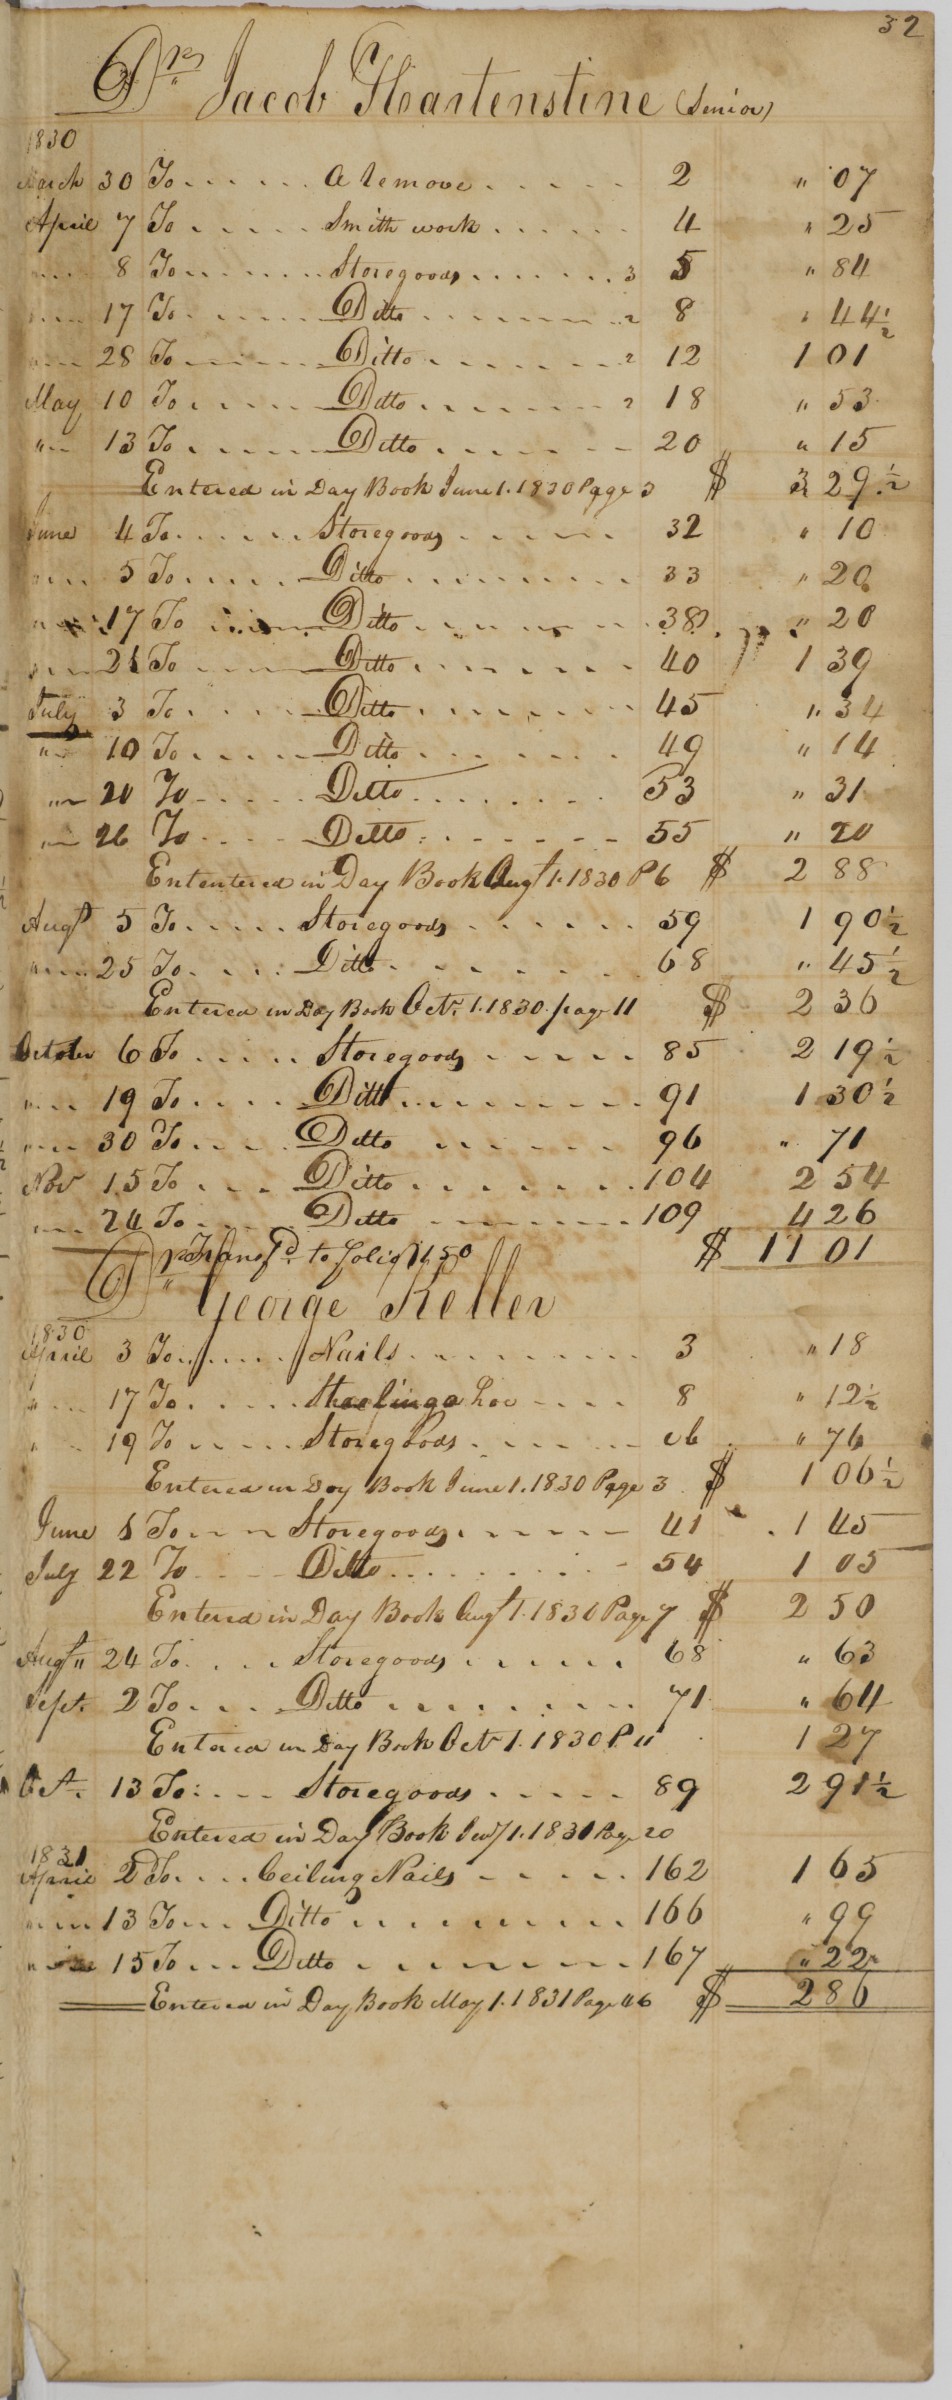 32
Dr Jacob Hartenstine (Senior)
1830
March 30 To . . . . . . A remove . . . . . 2 " 07
April 7 To . . . . . Smith work . . . . . . 4 " 25
" 8 To . . . . . . Storegoods . . . . . . 3 5 " 84
" 17 To . . . . . Ditto . . . . . . 2 8 " 44½
" 28 To . . . . . Ditto . . . . . . 2 12 1 01
May 10 To . . . . . Ditto . . . . . . 2 18 " 53
" 13 To . . . . . Ditto . . . . . . 20 " 15
Entered in Day Book June 1. 1830 Page 3 $ 3 29½
June 4 To . . . . . Storegoods . . . . . 32 " 10
" 5 To . . . . . Ditto . . . . . . 33 " 20
" 17 To . . . . . Ditto . . . . . . 38 " 20
" 21 To . . . . . Ditto . . . . . . 40 1 39
July 3 To . . . . . Ditto . . . . . . 45 " 34
" 10 To . . . . . Ditto . . . . . . 49 " 14
" 20 To . . . . . Ditto . . . . . . 53 " 31
" 26 To . . . . . Ditto . . . . . . 55 " 20
Ententered in Day Book Augt 1. 1830 P 6 $ 2 88
Augt 5 To . . . . . Storegoods . . . . . . 59 1 90½
" 25 To . . . . . Ditto . . . . . . 68 " 45½
Entered in Day Book Octr. 1. 1830. page 11 $ 2 36
October 6 To . . . . . Storegoods . . . . . 85 2 19½
" 19 To . . . . Ditto . . . . . . 91 1 30½
" 30 To . . . . Ditto . . . . . . 96 " 71
Nov 15 To . . . . Ditto . . . . . . 104 2 54
" 24 To . . . . Ditto . . . . . . 109 4 26
Transfd. to Folio 150 $ 11 01
Dr George Keller
1830
April 3 To . . . . . Nails . . . . . . 3 " 18
" 17 To . . . . . hoe . . . . 8 " 12½
" 19 To . . . . . Storegoods . . . . . " 76
Entered in Day Book June 1. 1830 Page 3 $ 1 06½
June To . . . . Storegoods . . . . . 41 1 45
July 22 To . . . . Ditto . . . . . . 54 1 05
Entered in Day Book Augt 1. 1830 Page 7 $ 2 50
Augt " 24 To . . . . Storegoods . . . . . . 68 " 63
Sept. 2 To . . . . Ditto . . . . . . 71 " 64
Entered in Day Book Octr 1. 1830 P. 11 1 27
Oct. 13 To . . . . Storegoods . . . . . 89 2 91½
Entered in Day Book 1. 1831 Page 20
1831
April 2 To . . . . Ceiling Nails . . . . . 162 1 65
" 13 To . . . Ditto . . . . . . 166 " 99
" 15 To . . . Ditto . . . . . . 167 " 22
Entered in Day Book May 1. 1831 Page 46 $ 2 86